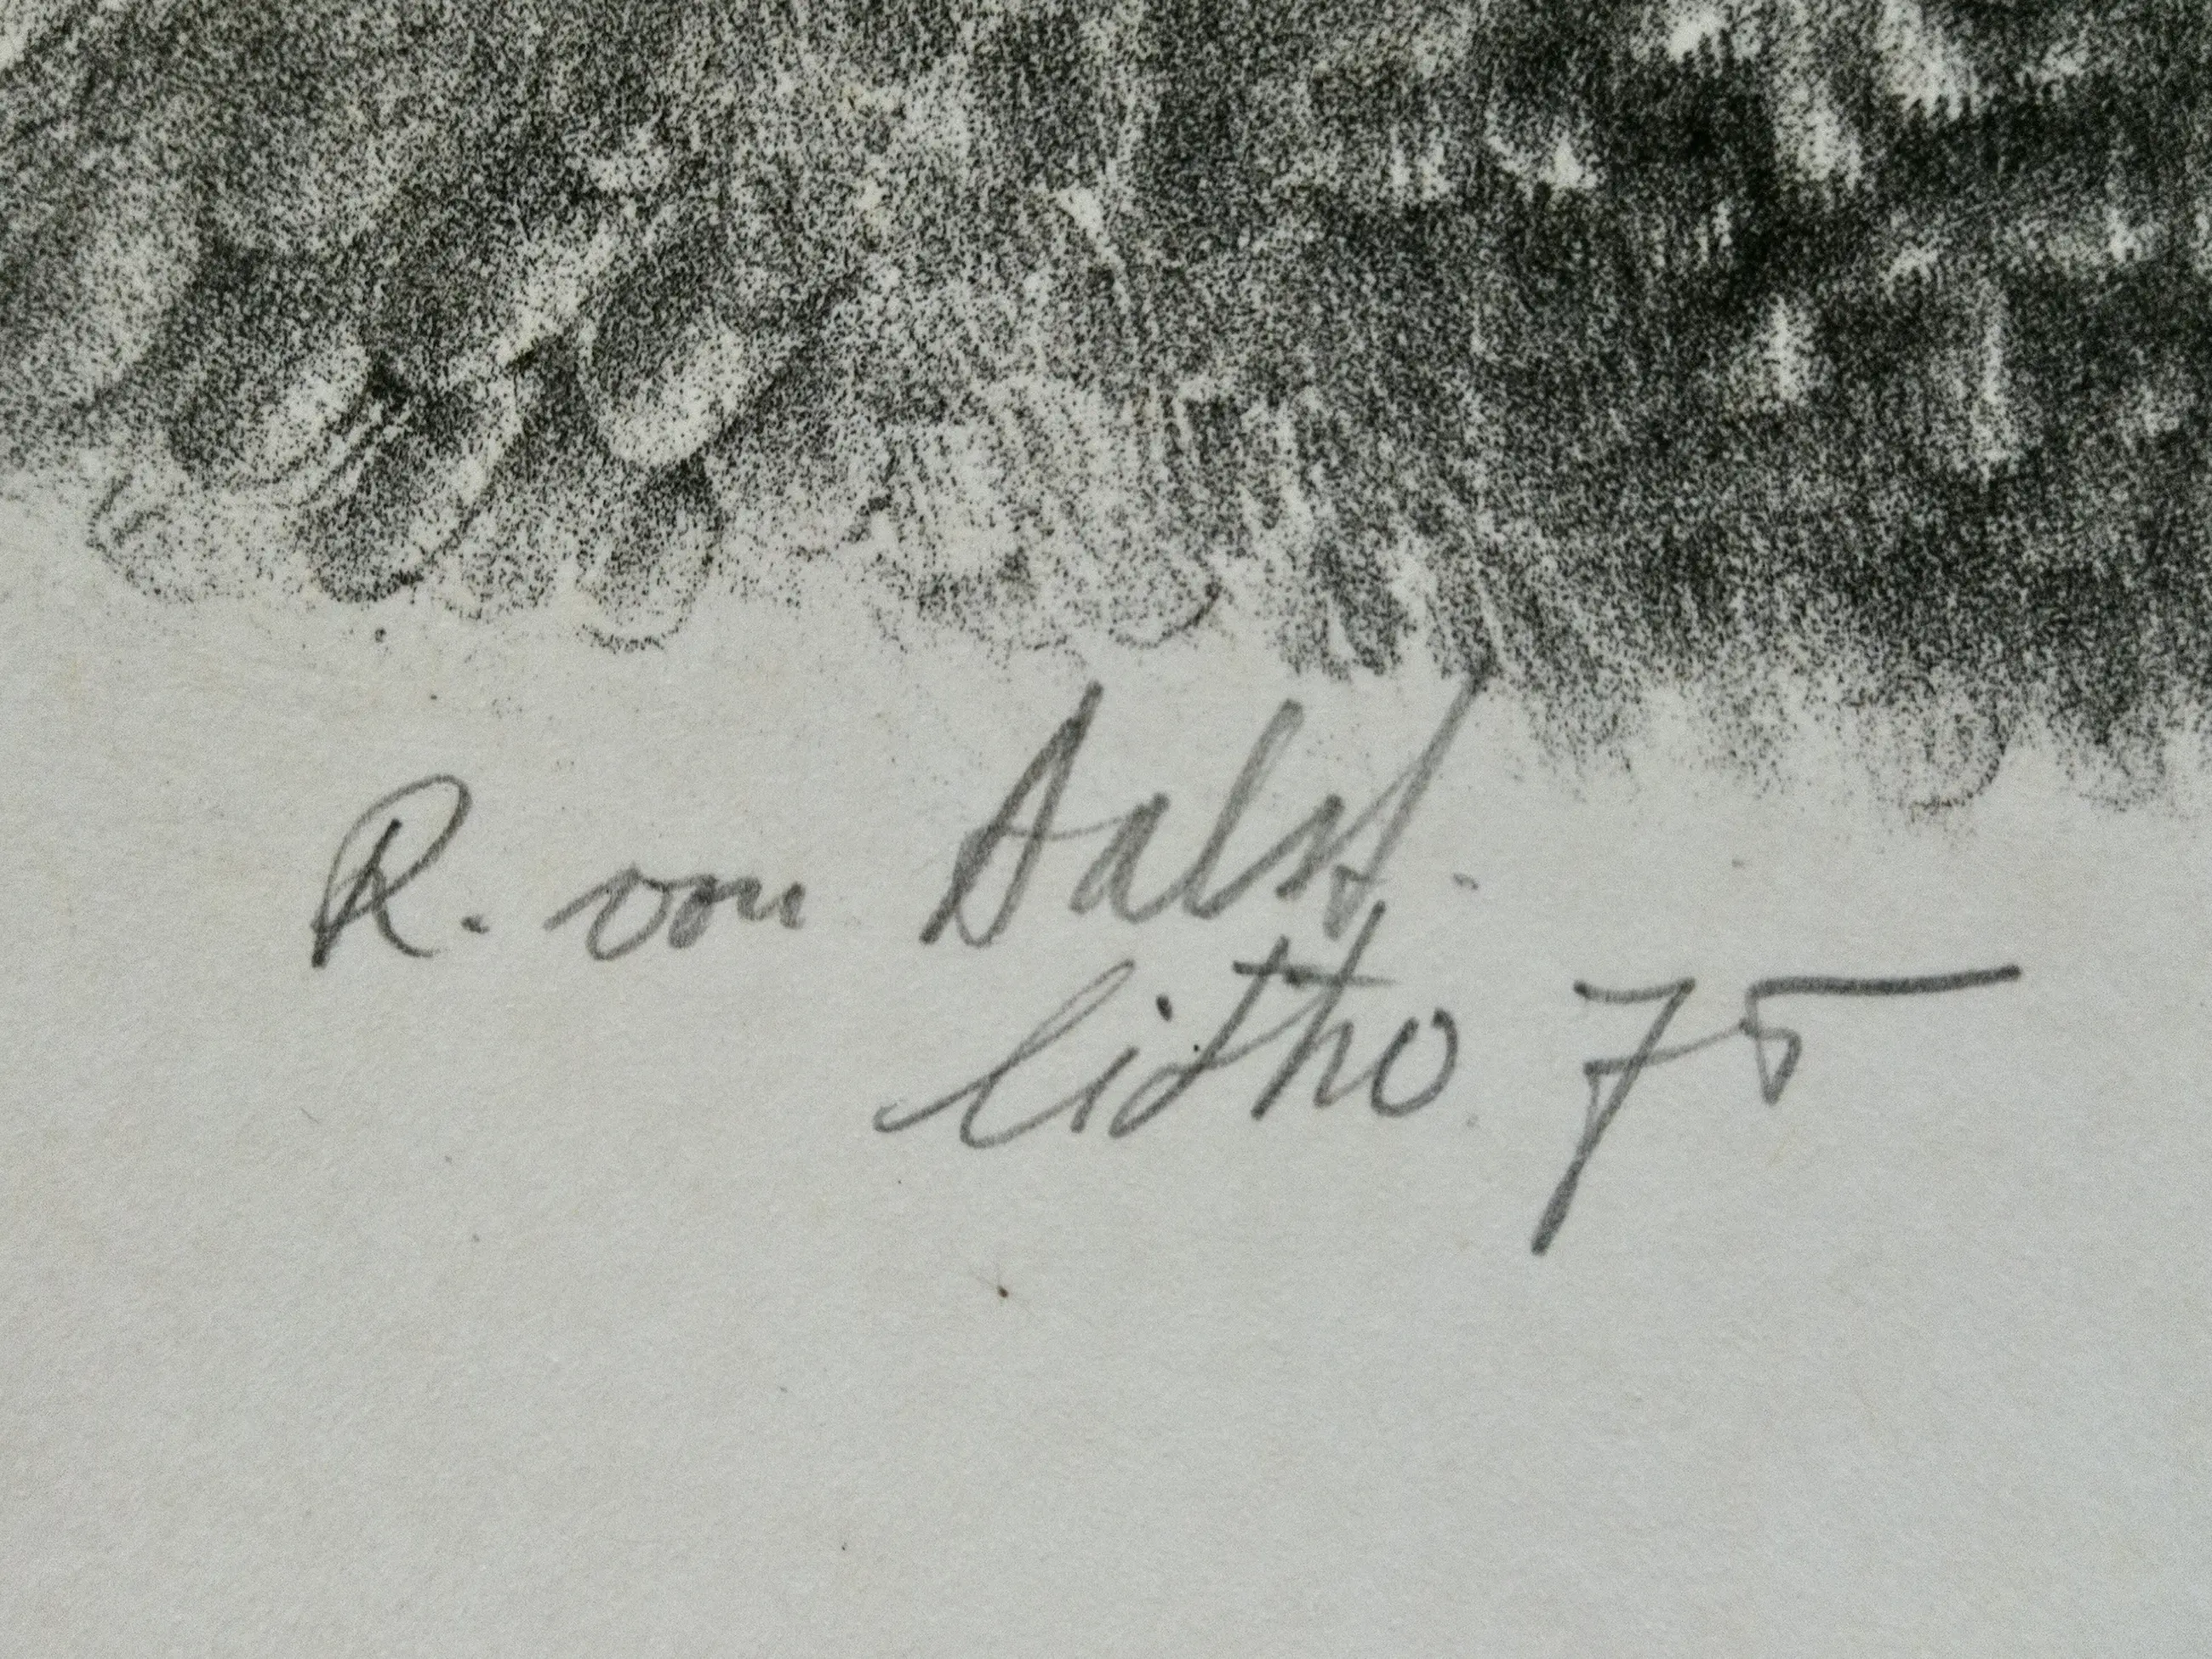 R. von Aalst.
litho. 75